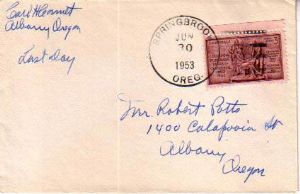 Albany Oregon
Last Day
SPRINGBROOK
JUN
30
1953
OREG.
Mr. Robert Potts
1400 Calapooia St
Albany
Oregon